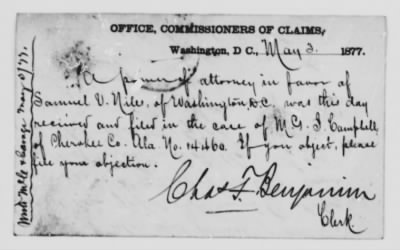 OFFICE, COMMISSIONERS OF CLAIMS,
Washington, D C., May 3. 1877.
A power of attorney in favor of
Samuel V. Niles, of Washington, D.C. was this day
received and filed in the case of M. G. J. Campbell,
of Cherokee Co. Ala No. 14460. If you object, please
file your objection.
Chas F. Benjamin
Clerk
change May 5/77.